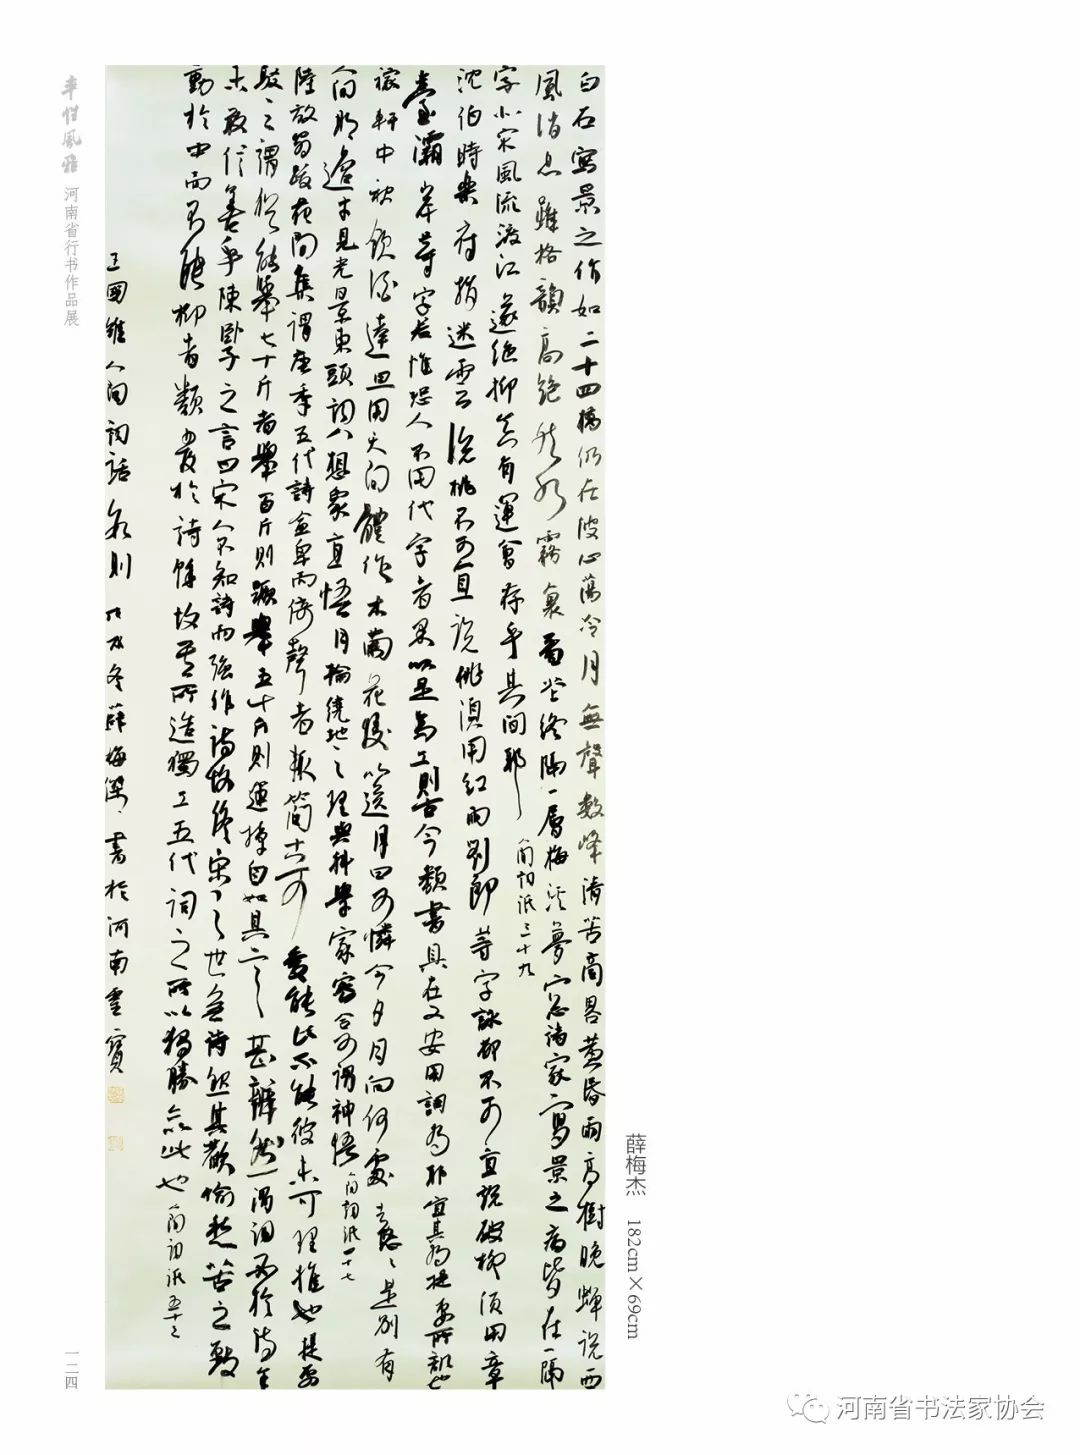 白石寫景之作如二十四橋仍在波心蕩冷月無聲數峰清苦商畧黃昏雨高樹晚蟬說西
風消息雖格韻高絕然如霧裏看花終隔一層梅溪夢窗諸家寫景之病皆在一隔
字北宋風流渡江遂絕抑真有運會存乎其間耶 人間詞話三十九
沈伯時樂府指迷云說桃不可直說桃須用紅雨劉郎等字詠柳不可直說破柳須用章
臺灞岸等字若惟恐人不用代字者果以是為工則古今類書具在又安用詞為耶宜其為提要所譏也
稼軒中秋飲酒達旦用天問體作木蘭花慢以送月曰可憐今夕月向何處去悠悠是別有
人間那邊才見光景東頭詞人想象直悟月輪繞地之理與科學家密合可謂神悟 人間詞話四十七
陸放翁跋花間集謂唐季五代詩愈卑而倚聲者輒簡古可愛能此不能彼未可理推也提要
駁之謂猶能舉七十斤者舉百斤則蹶舉五十斤則運掉自如其言甚辨然謂詞必於詩余
未敢信善乎陳臥子之言曰宋人不知詩而強作詩故終宋之世無詩然其歡愉愁苦之致
動於中而不能抑者類發於詩餘故其所造獨工五代詞之所以獨勝亦此也 人間詞話五十三
王國維人間詞話數則 冬薛梅傑書於河南靈寶
薛梅杰 182cm×69cm
河南省行书作品展
一二四
河南省书法家协会